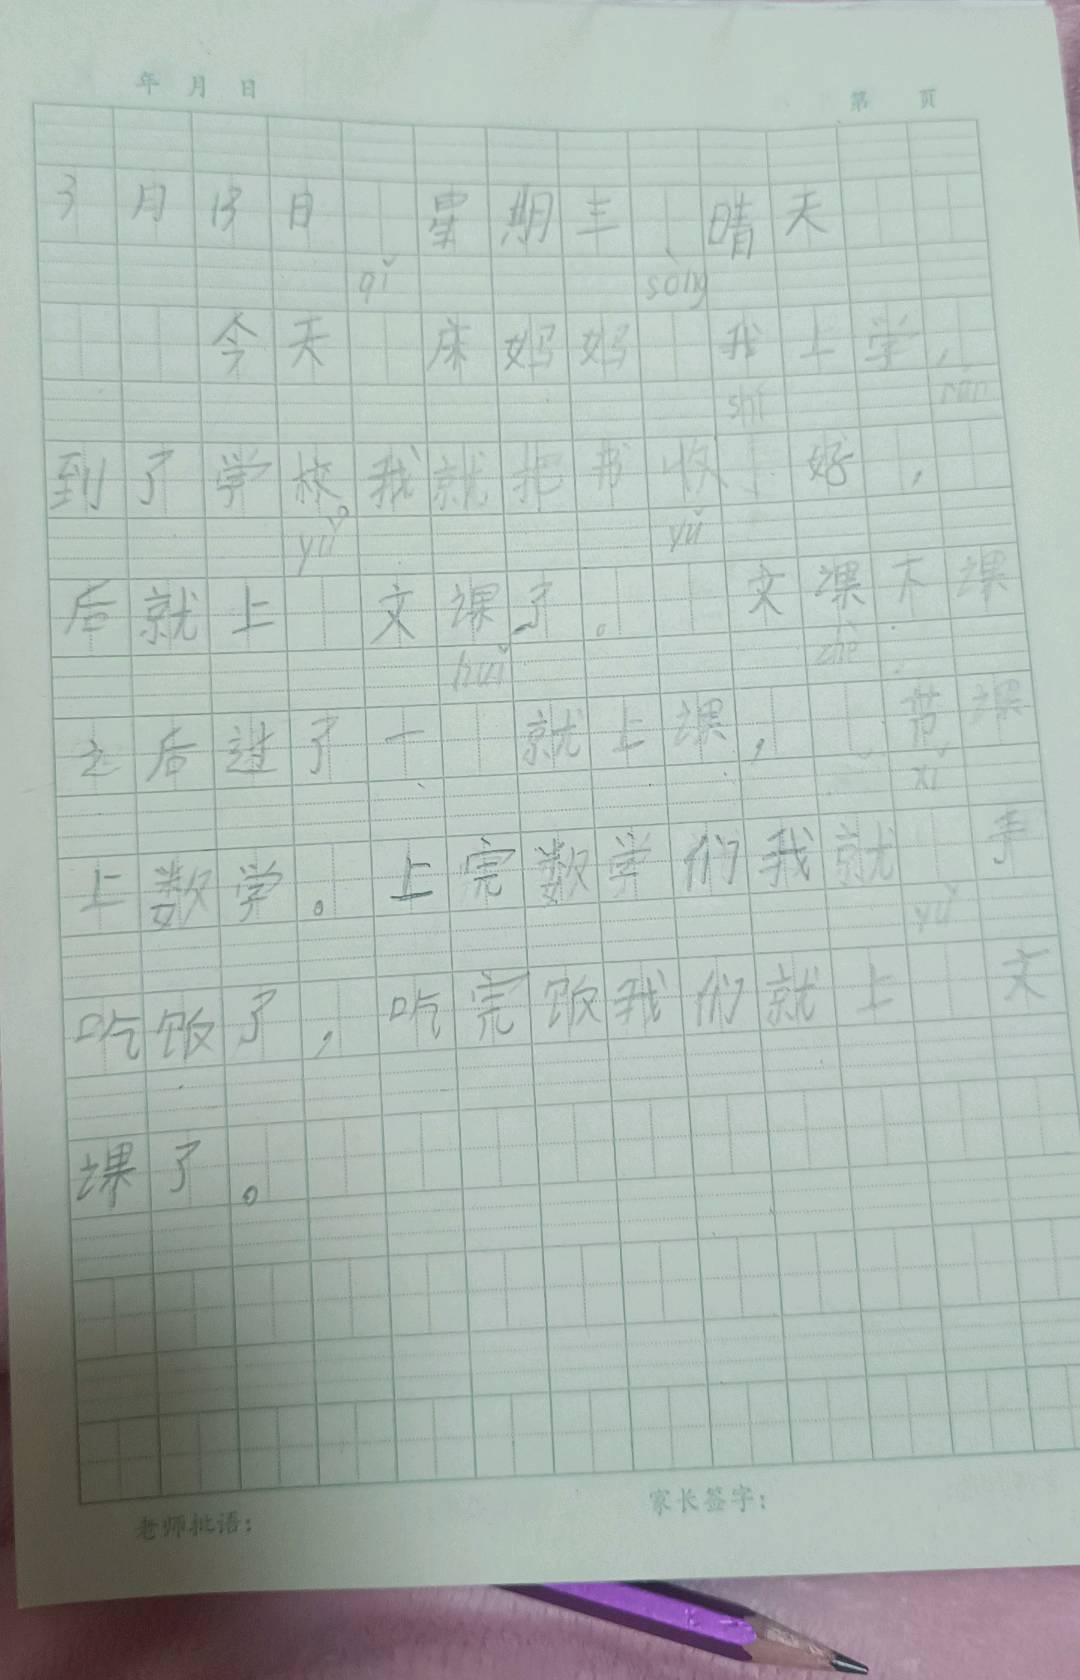 年 月 日 第 页
3月13日 星期三 晴天
qǐ sòng
今天 床妈妈 我上学,
shí rán
到了学校。我就把书收 好,
yǔ yǔ
后就上 文课了。 文课下课
huǐ zhè
之后过了一 就上课, 节课
xǐ
上数学。上完数学们我就 手
yǔ
吃饭了,吃完饭我们就上 文
课了。
老师批语: 家长签字: